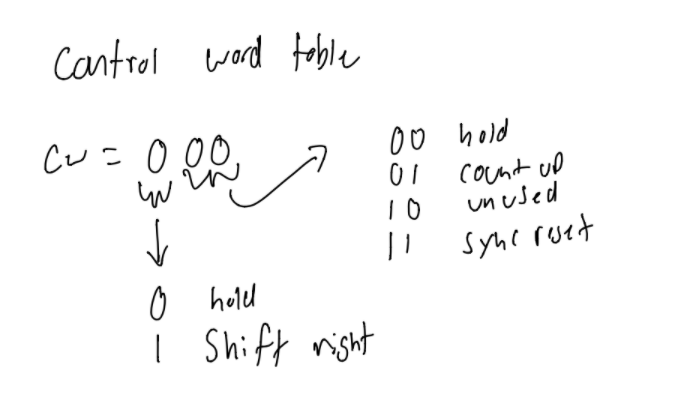 Control word table
CW = 0 00
00 hold
01 count up
10 unused
11 sync reset
0 hold
1 Shift right